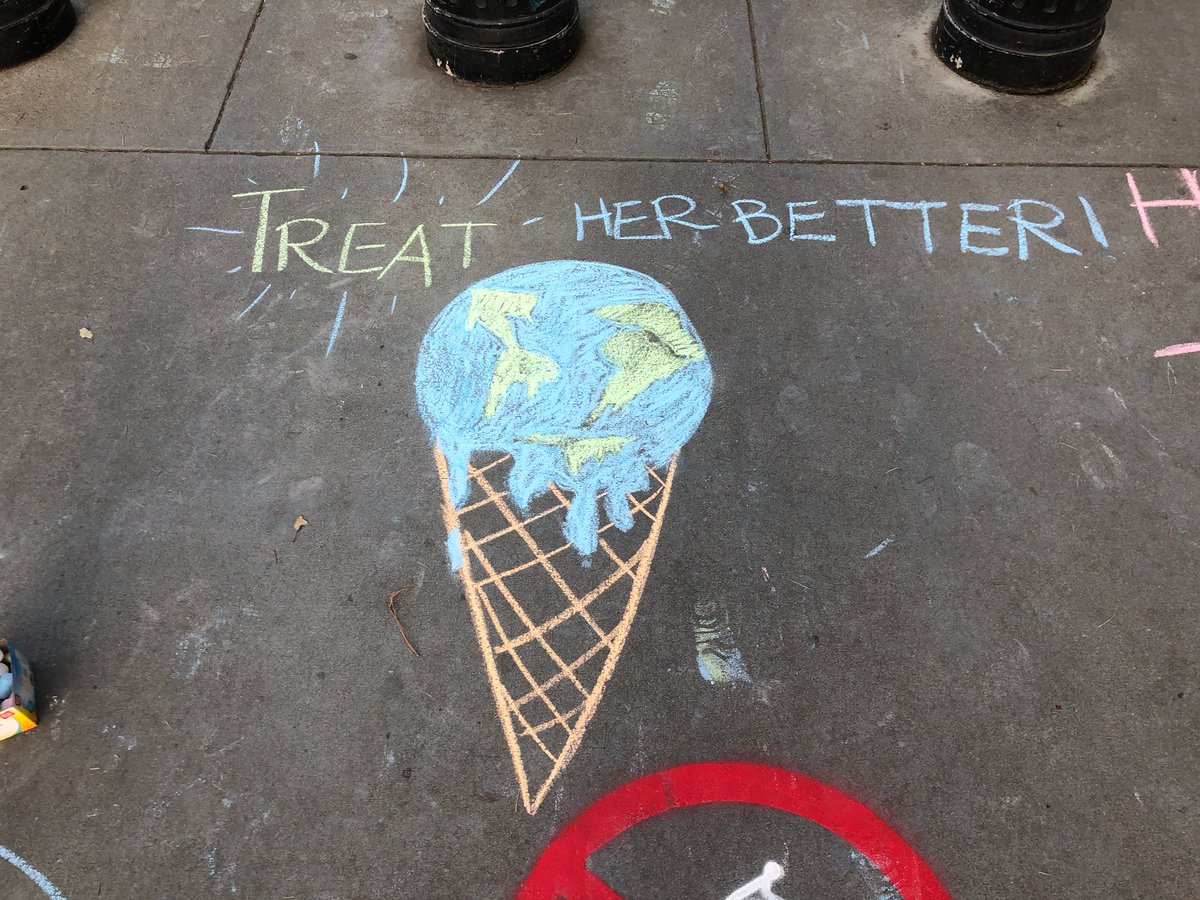 TREAT HER BETTER!
H